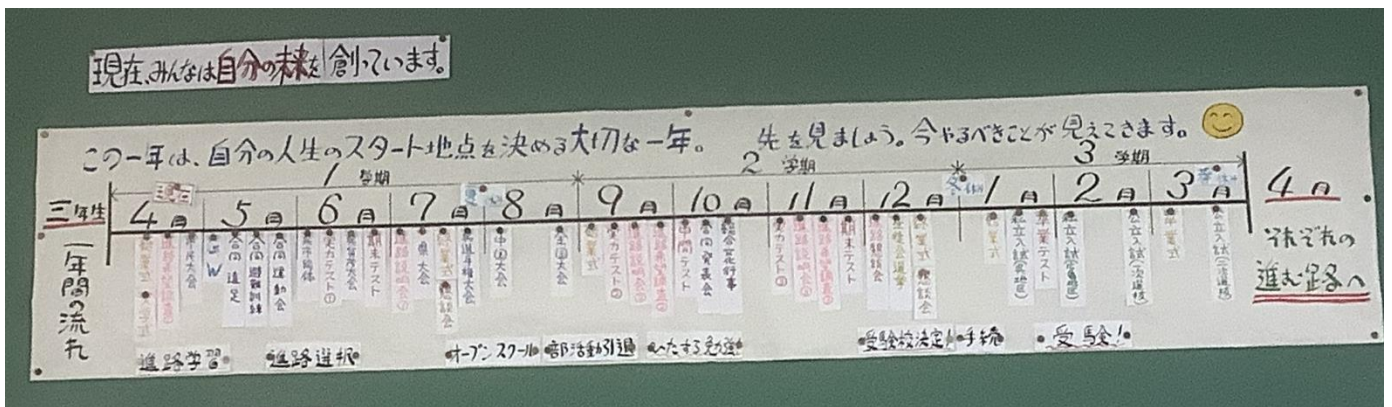 現在、みんなは自分の未来を創っています。
この一年は、自分の人生のスタート地点を決める大切な一年。 先を見ましょう。今やるべきことが見えてきます。
1学期 2学期 3学期
三年生 4月 5月 6月 7月 8月 9月 10月 11月 12月 1月 2月 3月 4月
一年間の流れ
GW
合同遠足
合同避難訓練
合同運動会
実力テスト①
期末テスト
進路説明会①
県大会
終業式
懇談会
県選手権大会
中国大会
全国大会
始業式
実力テスト②
進路説明会②
進路希望調査②
中間テスト
合同発表会
総合文化行事
実力テスト③
進路説明会③
進路希望調査③
期末テスト
進路懇談会
生徒会選挙
終業式
懇談会
始業式
卒業テスト
卒業式
それぞれの
進む路へ
進路学習
進路選択
オープンスクール
部活動引退
ひたすら勉強
受験校決定!
手続
受験!